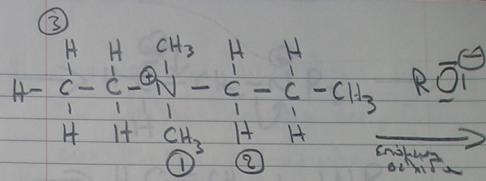 ③
H H CH₃ H H
H- C - C - ⊕N - C - C - CH₃ R O ⊖
H H CH₃ H H
① ②